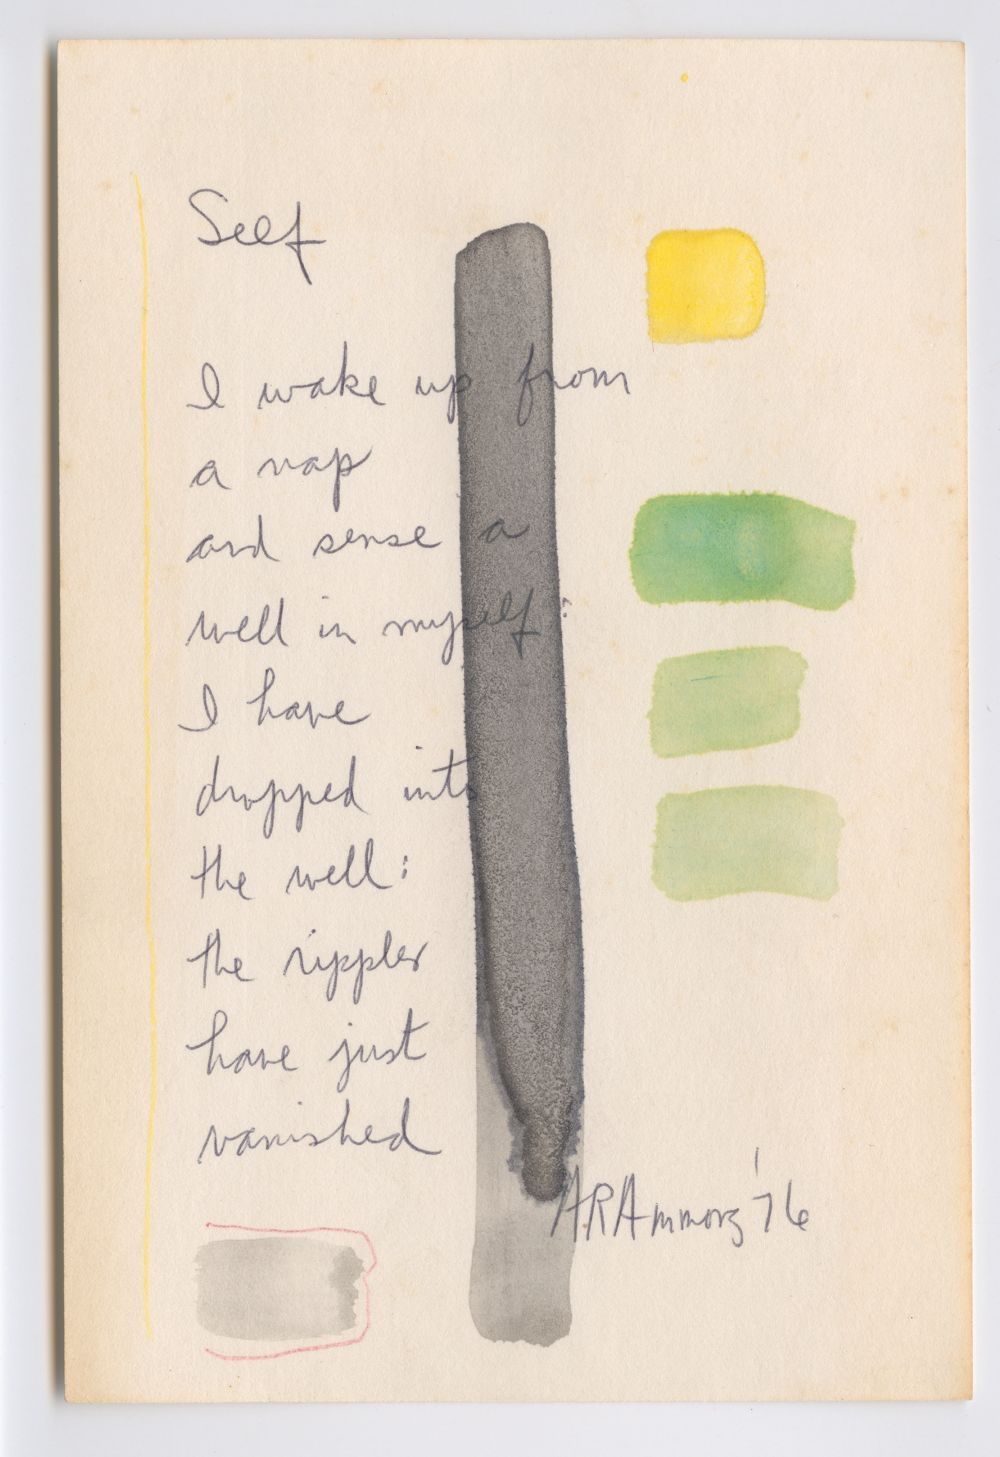 Self
I wake up from
a nap
and sense a
well in myself:
I have
dropped into
the well:
the ripples
have just
vanished
ARAmmons '76